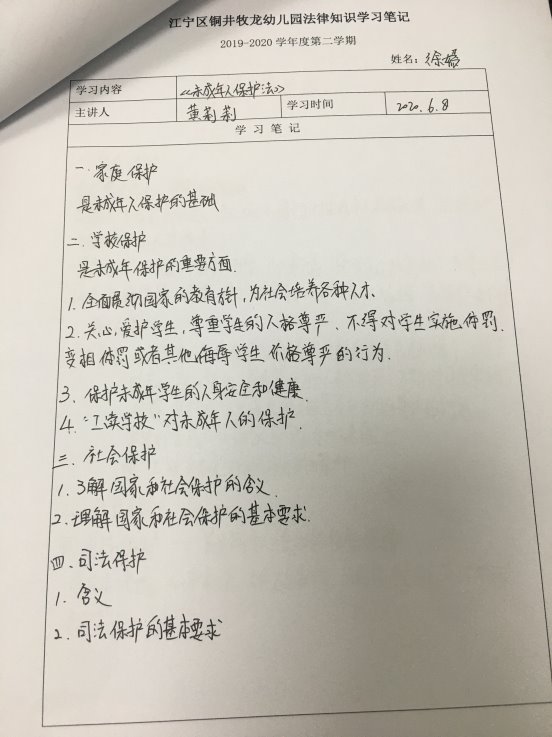 江宁区铜井牧龙幼儿园法律知识学习笔记
2019-2020 学年度第二学期
姓名：徐婷
学习内容 《未成年人保护法》
主讲人 黄莉莉 学习时间 2020.6.8
学习笔记
一.家庭保护
是未成年人保护的基础
二.学校保护
是未成年保护的重要方面.
1.全面贯彻国家的教育方针,为社会培养各种人才.
2.关心,爱护学生,尊重学生的人格尊严、不得对学生实施体罚.
变相体罚或者其他侮辱学生人格尊严的行为.
3.保护未成年学生的人身安全和健康.
4."工读学校"对未成年人的保护.
三.社会保护
1.了解国家和社会保护的含义.
2.理解国家和社会保护的基本要求.
四.司法保护
1.含义
2.司法保护的基本要求